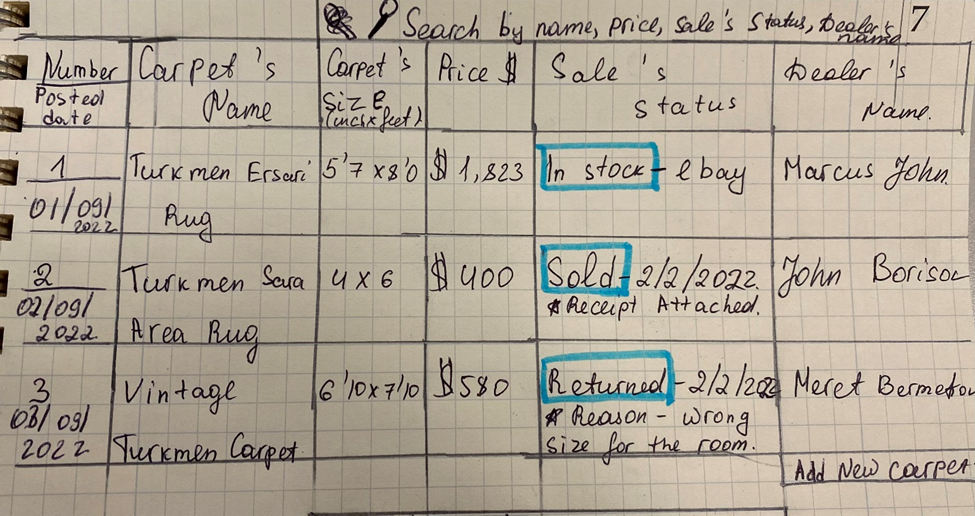 Search by name, price, sale's status, Dealer's name 7
Number Posted date
Carpet's Name
Carpet's Size (incs x feet)
Price $
Sale's Status
Dealer's Name.
1 01/09/2022
Turkmen Ersari Rug
5'7 x 8'0
$ 1,823
In stock - ebay
Marcus John.
2 02/09/2022
Turkmen Sara Area Rug
4 x 6
$ 400
Sold - 2/2/2022.
* Receipt Attached.
John Borisoc
3 03/09/2022
Vintage Turkmen Carpet
6'10 x 7'10
$580
Returned - 2/2/2022
* Reason - wrong
size for the room.
Meret
Add New Carpet